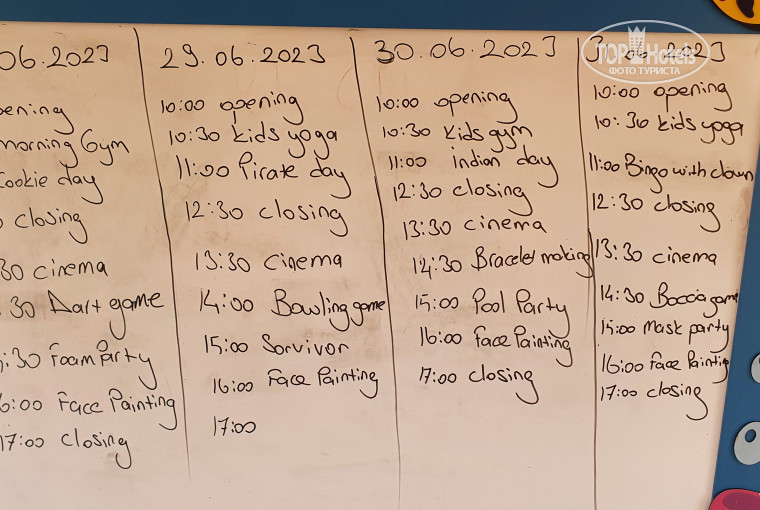 06.2023
pening
morning Gym
Cookie day
closing
30 cinema
30 Dart game
:30 Foam Party
6:00 Face Painting
17:00 closing
29.06.2023
10:00 opening
10:30 kids yoga
11:00 Pirate day
12:30 closing
13:30 cinema
14:00 Bowling game
15:00 Sorvivor
16:00 Face Painting
17:00
30.06.2023
10:00 opening
10:30 kids gym
11:00 indian day
12:30 closing
13:30 cinema
14:30 Bracelet making
15:00 Pool Party
16:00 Face Painting
17:00 closing
2023
10:00 opening
10:30 kids yoga
11:00 Bingo with clown
12:30 closing
13:30 cinema
14:30 Boccia game
15:00 mask party
16:00 Face Painting
17:00 closing
TOP Hotels
ФОТО ТУРИСТА